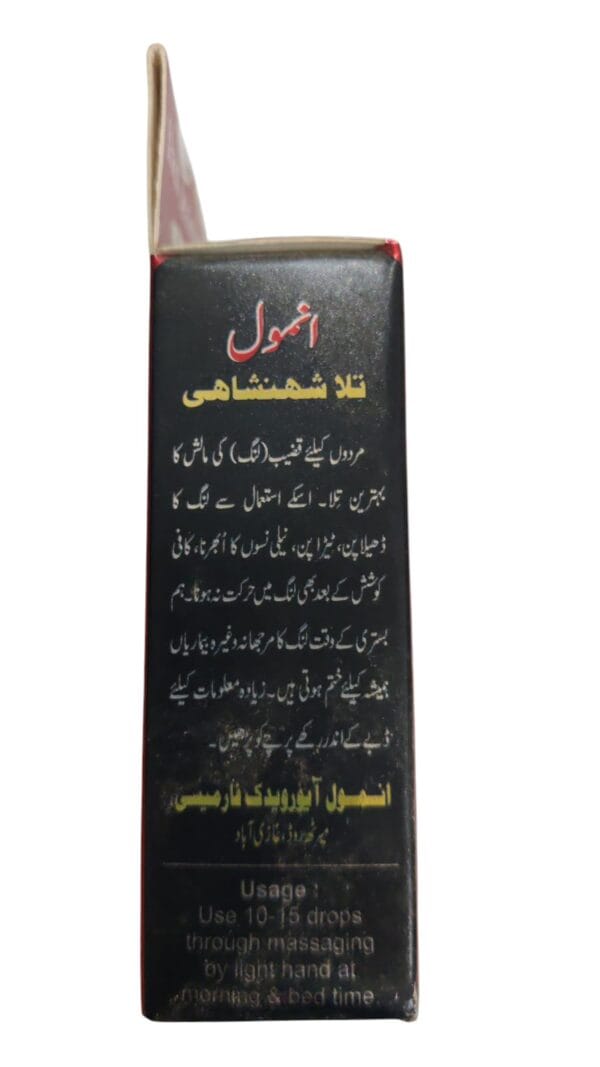 انمول
تِلا شہنشاہی
مردوں کیلئے قضیب (لنگ) کی مالش کا
بہترین تِلا۔ اسکے استعمال سے لنگ کا
ڈھیلاپن، ٹیڑاپن، نیلی نسوں کا اُبھرنا، کافی
کوشش کے بعد بھی لنگ میں حرکت نہ ہونا۔ ہم
بستری کے وقت لنگ کا مرجھانہ وغیرہ بیماریاں
ہمیشہ کیلئے ختم ہوتی ہیں۔ زیادہ معلومات کیلئے
ڈبے کے اندر رکھے پرچے کو پڑھیں۔
انمول آیورویدک فارمیسی
میرٹھ روڈ، غازی آباد
Usage :
Use 10-15 drops
through massaging
by light hand at
morning & bed time.